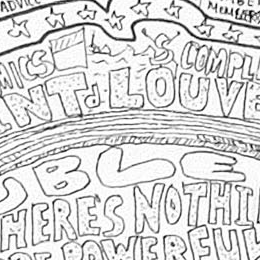 ADVICE
MEMBERS
MICS COMPLE
INT d LOUVE
UBLE
HERES NOTHI
POWERFUL